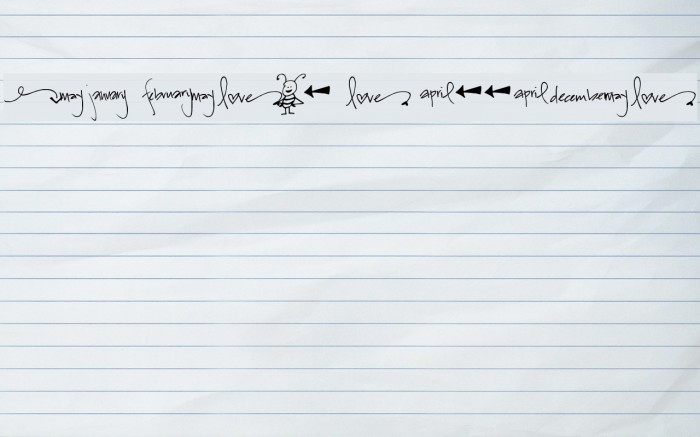 may january february may love love april april december may love